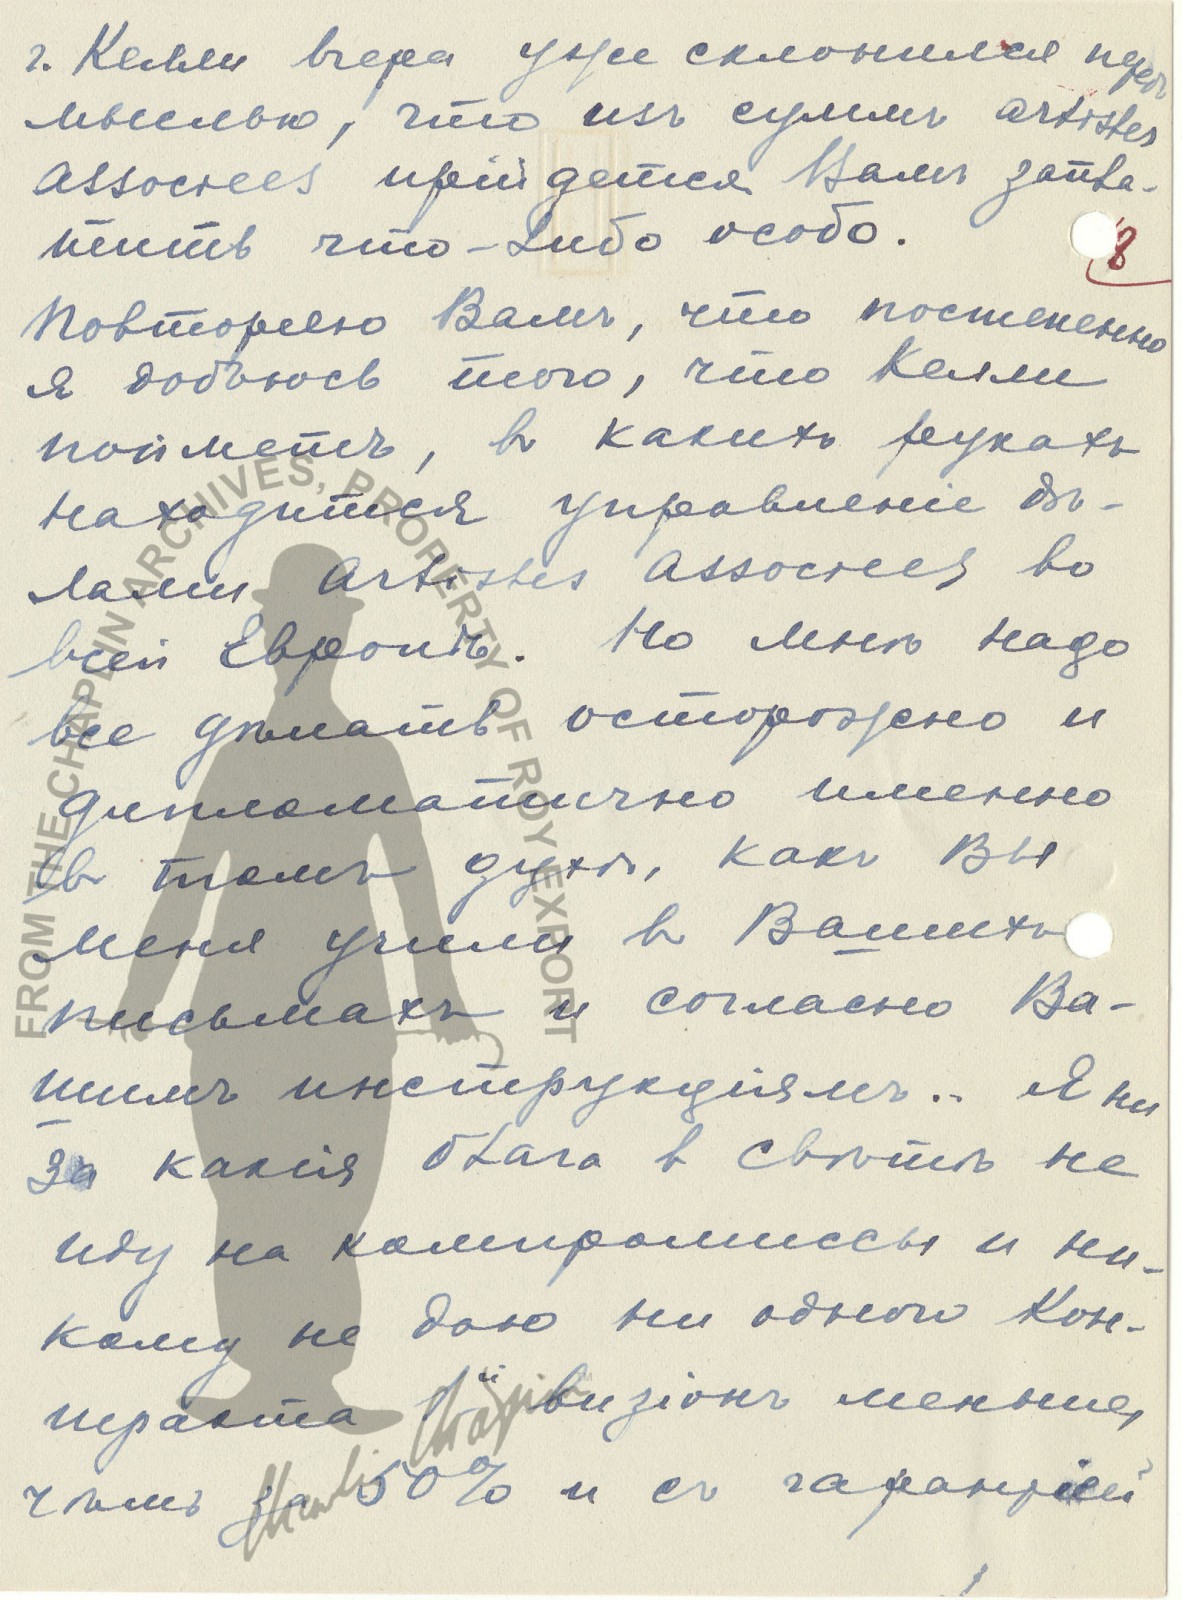 г. Келли вчера уже склонился передъ
мыслью, что изъ суммъ artistes
associees прійдется Вамъ запла-
тить что-либо особо.
8
Повторяю Вамъ, что постепенно
я добьюсь того, что Келли
пойметъ, въ какихъ рукахъ
находится управленіе дѣ-
лами artistes associees во
всей Европѣ. Но мнѣ надо
все дѣлать осторожно и
дипломатично именно
въ томъ духѣ, какъ Вы
меня учили въ Вашихъ
письмахъ и согласно Ва-
шимъ инструкціямъ.. Я ни
за какія блага в свѣтѣ не
иду на компромиссы и ни-
кому не даю ни одного Кон-
тракта візіонъ меньше,
чѣмъ за 50% и съ гарантіей
FROM THE CHAPLIN ARCHIVES, PROPERTY OF ROY EXPORT
Charlie Chaplin